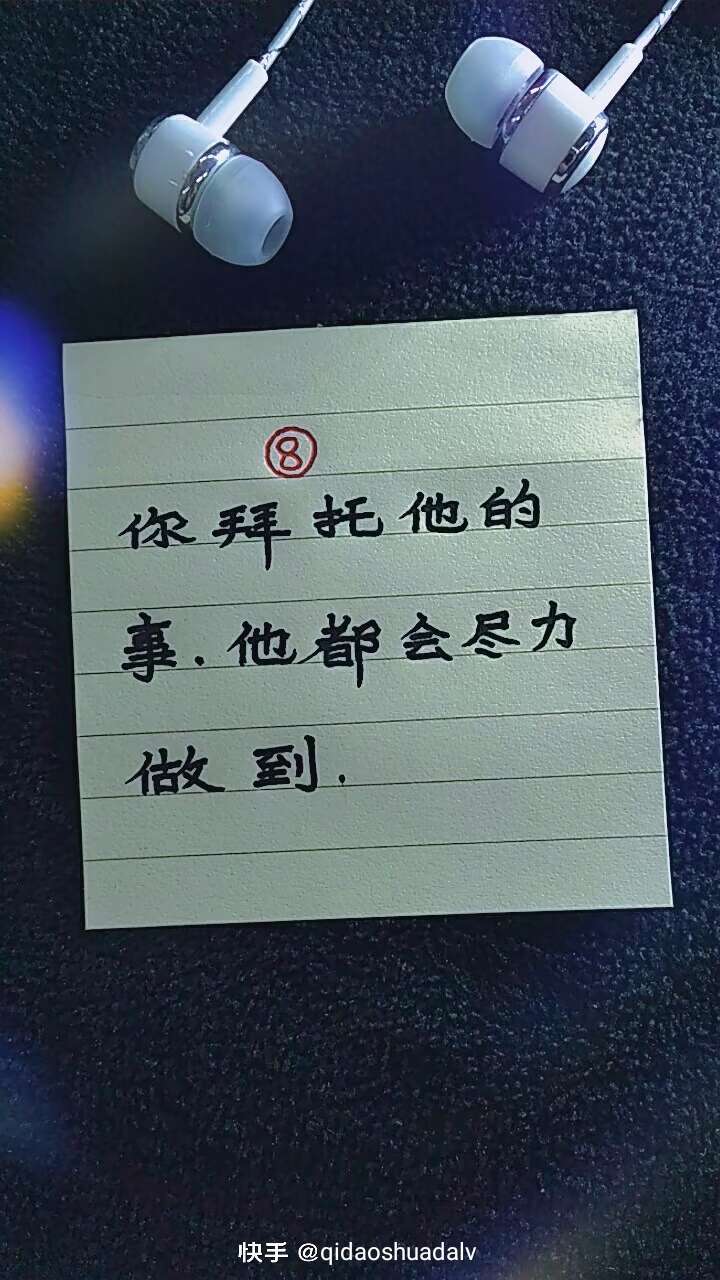 ⑧
你拜托他的
事.他都会尽力
做到.
快手 @qidaoshuadalv